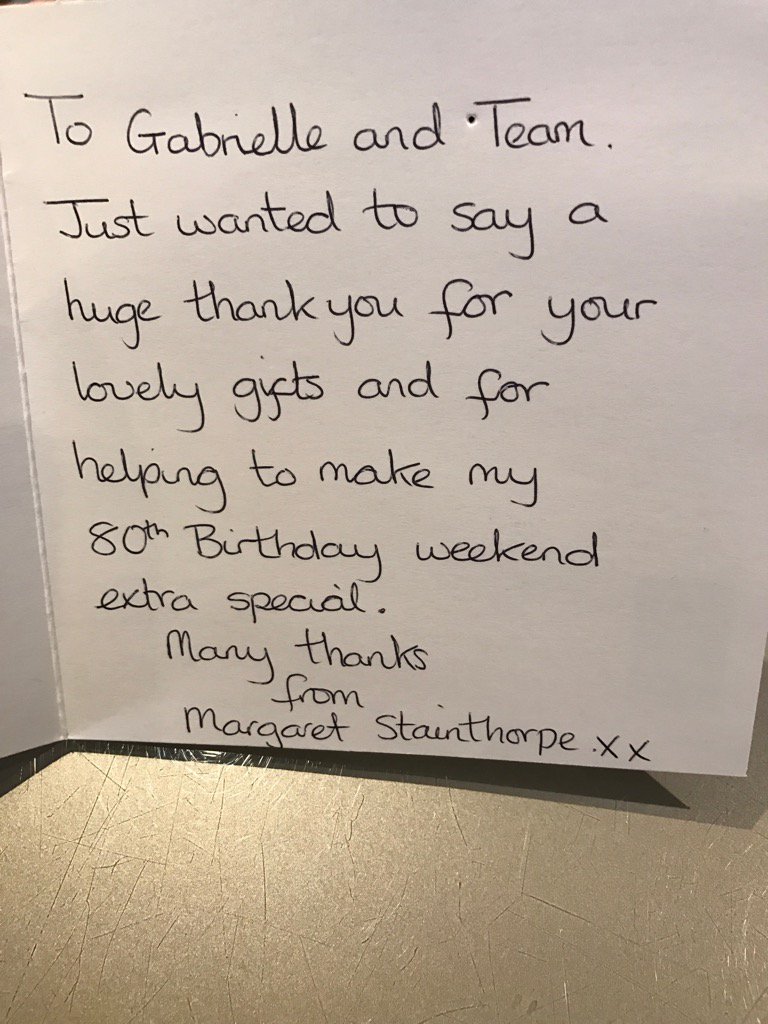 To Gabrielle and Team.
Just wanted to say a
huge thank you for your
lovely gifts and for
helping to make my
80th Birthday weekend
extra special.
Many thanks
from
Margaret Stainthorpe .xx